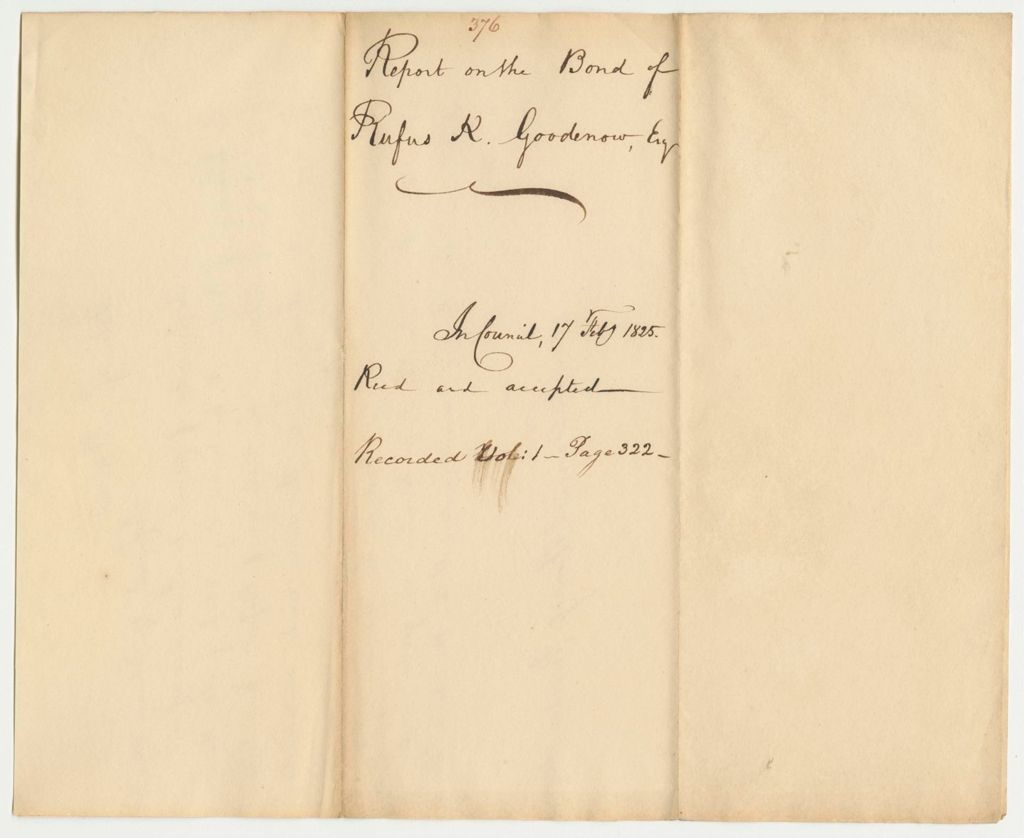 376
Report on the Bond of
Rufus K. Goodenow, Esq
In Council, 17 Feby 1825.
Read and accepted
Recorded Vol: 1 - Page 322 -